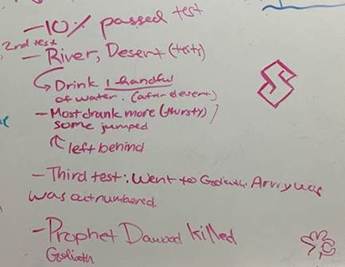 -10% passed test
2nd test
- River, Desert (tests)
Drink 1 handful
of water. (after desert)
- Most drank more (thirsty)/
some jumped
left behind
- Third test: Went to Goliath. Army was
was outnumbered.
- Prophet Dawood killed
Goliath